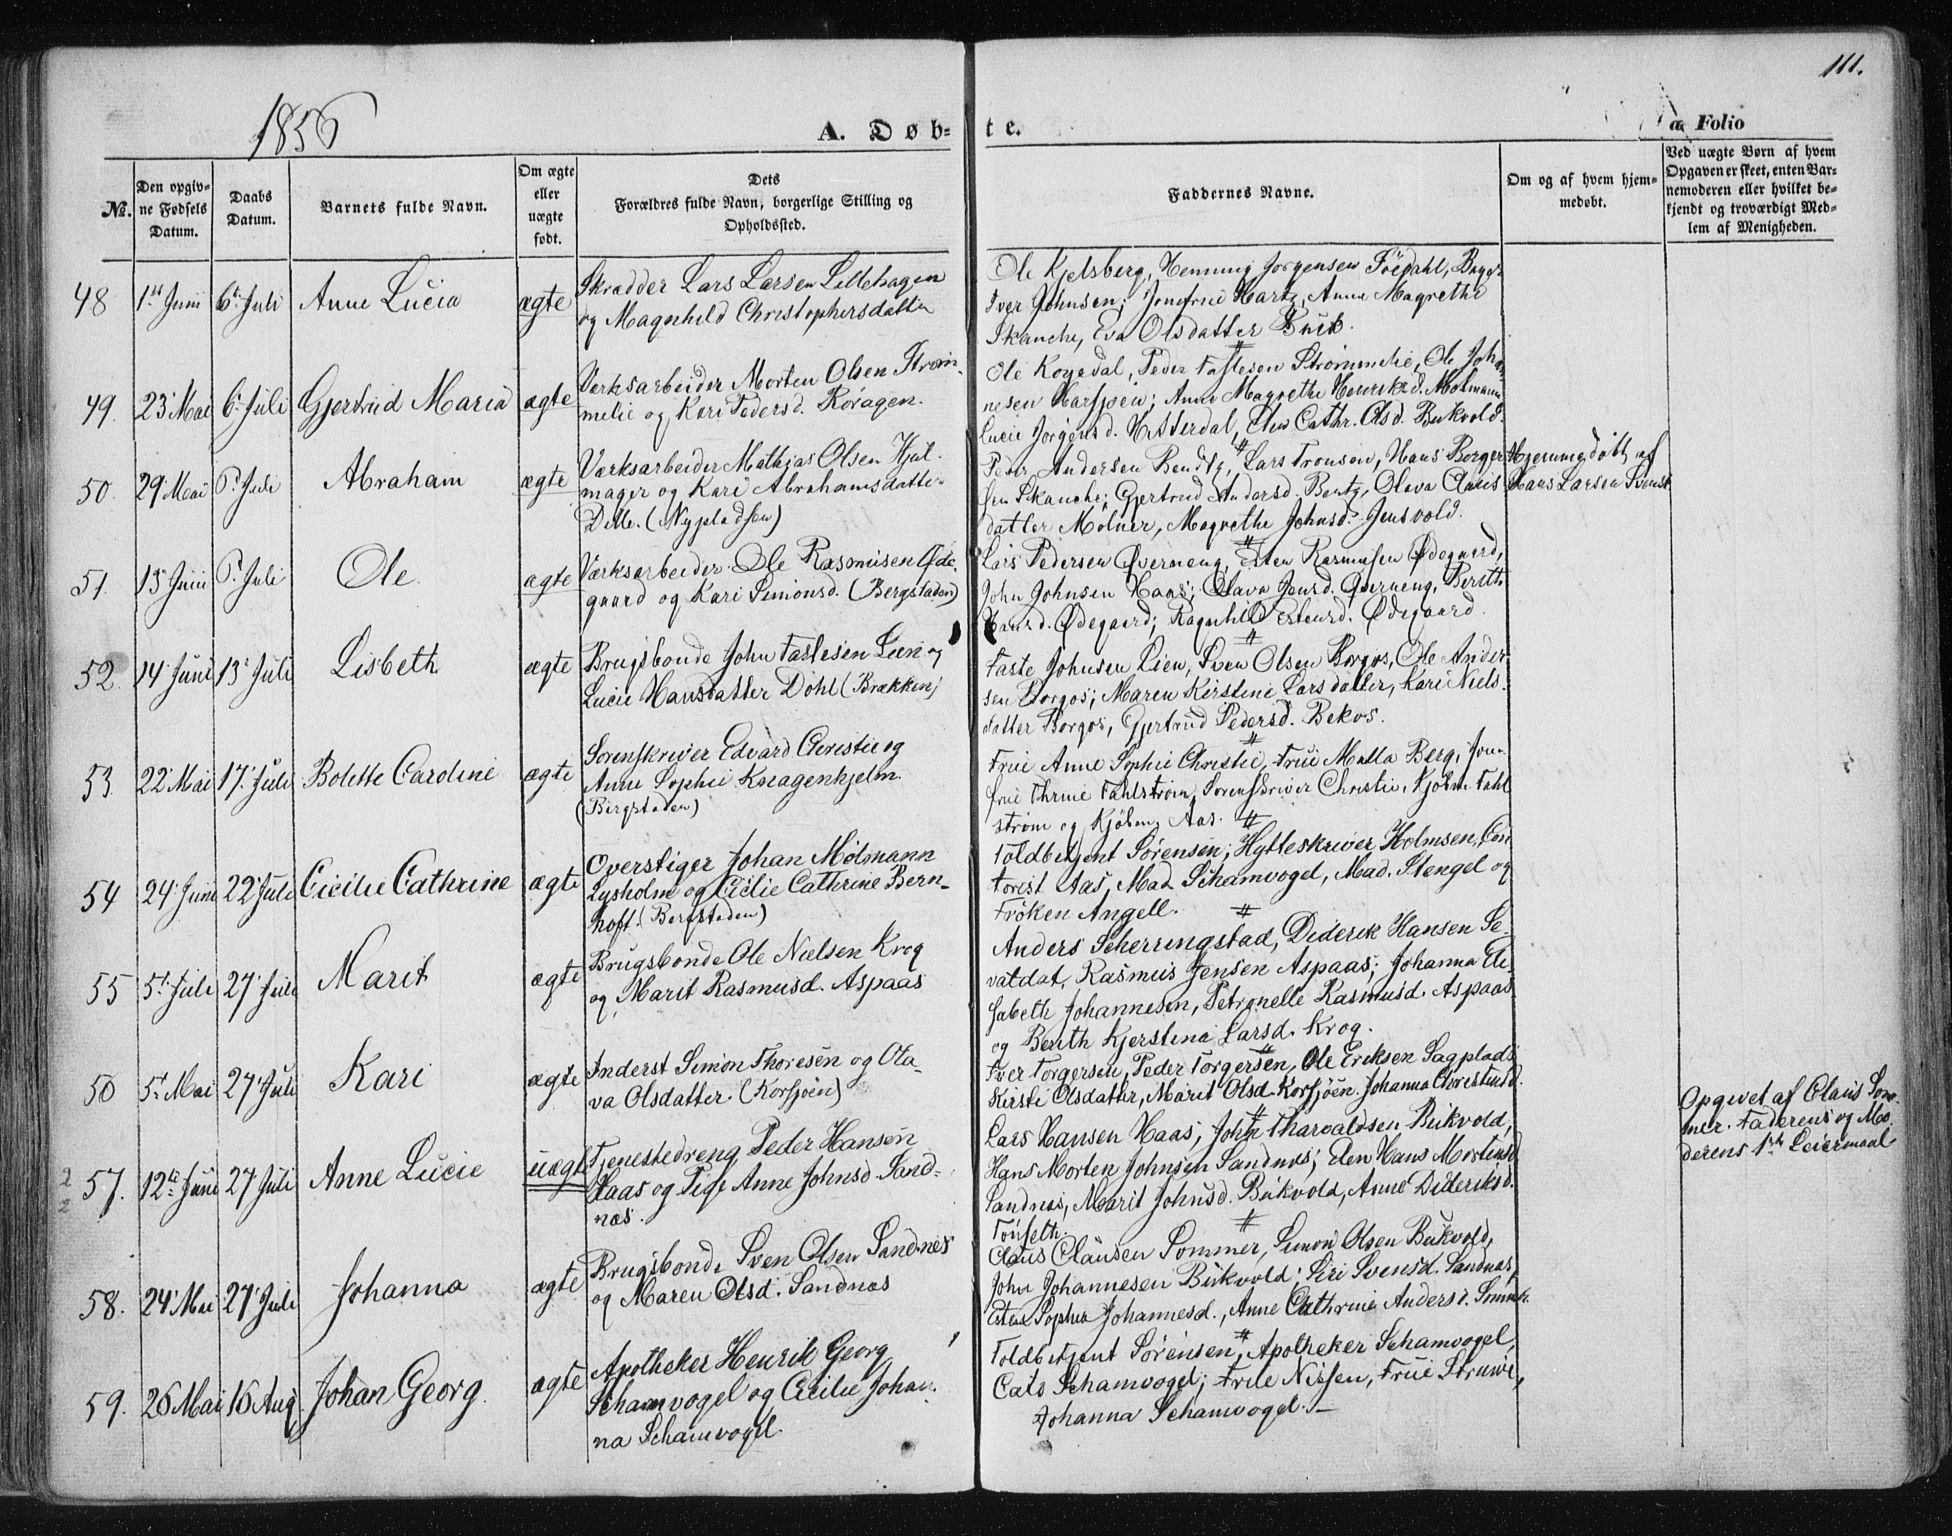 111.
1856
A. Døb-
te.
a Folio
No.
Den opgiv-
ne Fødsels
Datum.
Daabs
Datum.
Barnets fulde Navn.
Om ægte
eller
uægte
født.
Dets
Forældres fulde Navn, borgerlige Stilling og
Opholdssted.
Faddernes Navne.
Om og af hvem hjem-
medøbt.
Ved uægte Børn af hvem
Opgaven er skeet, enten Bar-
nemoderen eller hvilket be-
kjendt og troværdigt Med-
lem af Menigheden.
48 1ste Juni 6te Juli Anne Lucia ægte
Skrædder Lars Larsen Lillehagen
og Magnhild Christophersdatter
Ole Kjelsberg, Henning Jørgensen
Iver Johnsen; Jomfrue Hartz, Anne Magrethe
Skanche, Eva Olsdatter
49. 23' Mai 6' Juli Gjertrud Maria ægte
Værksarbeider Morten Olsen Strøm-
melie og Kari Pedersd. Koragen.
Ole Kogedal, Peder Fastesen Strømmelie, Ole Johan-
nesen Harsjøen; Anne Magrethe Henriksd. Molmann
Lucie Jørgensd. Hitterdal, Elen Cathr. Olsd. Bukvold.
50. 29' Mai 6' Juli Abraham ægte
Værksarbeider Mathias Olsen Hjul-
mager og Kari Abrahamsdatter
Dille. (Nypladsen)
Peder Andersen Bendtz, Lars Tronsen, Hans Borger-
sen Skanche; Gjertrud Andersd. Bentz, Olava Claus-
datter Mølner, Magrethe Johnsd. Jensvold.
Hjemmedøbt af
Hans Larsen Svensk
51. 15' Juni 6' Juli Ole. ægte
Værksarbeider Ole Rasmusen Øde-
gaard og Kari Simonsd. (Bergstaden)
Lars Pedersen Øverneng, Esten Rasmusen Ødegaard,
John Johnsen Haas; Olava Jensd. Øverneng, Berith
Hansd. Ødegaard; Ragnhild Estensd. Ødegaard.
52. 14' Juni 13' Juli Lisbeth ægte
Brugsbonde John Fastesen Lien og
Lucie Hansdatter Dohl (Brækken)
Faste Johnsen Lien, Sven Olsen Borgos, Ole Ander-
sen Borgos; Maren Kirstine Larsdatter, Kari Niels-
datter Borgos, Gjertrud Pedersd. Bekos.
53. 22' Mai 17' Juli Bolette Caroline ægte
Sorenskriver Edvard Christie og
Anne Sophie Koragenhjelm.
(Bergstaden)
Frue Anne Sophie Christie, Frue Matta Berg, Jom-
frue Thrine Fahlstrøm, Sorenskriver Christie, Kjøbm. Fahl-
strøm og Kjøbm. Aas.
54 24' Juni 22' Juli Cicilie Cathrine ægte
Overstiger Johan Mölmann
Lysholm og Cicilie Cathrine Bern-
hoft. (Bergstaden)
Toldbetjent Sørensen, Hytteskriver Holmsen, Con-
torist Aas, Mad. Schamvogel, Mad. Stengel og
Frøken Angell.
55 5te Juli 27' Juli Marit ægte
Brugsbonde Ole Nielsen Krog
og Marit Rasmusd. Aspaas
Anders Scherringstad, Diderik Hansen Se-
vatdat, Rasmus Jensen Aspaas; Johanna Eli-
sabeth Johannesen, Petronelle Rasmusd. Aspaas
og Berith Kjerstina Larsd. Krog.
50 5' Mai 27' Juli Kari ægte
Inderst Simon Thoresen og Ola-
va Olsdatter. (Korsjöen)
Iver Torgersen, Peder Torgersen, Ole Eriksen Sagplads
Kirsti Olsdatter, Marit Olsd. Korsjöen, Johanna Christensd.
57. 12te Juni 27' Juli Anne Lucie uægte
Tjenestedreng Peder Hansen
Haas og Pige Anne Johnsd. Sand-
næs.
Lars Hansen Haas, John Tharaldsen Bukvold,
Hans Morten Johnsen Sandnæs; Elen Hans Mortensd.
Sandnæs, Marit Johnsd. Bukvold, Anne Dideriksd.
Tönseth.
Opgivet af Claus Som-
mer. Faderens og Mo-
derens 1ste Leiermaal
58. 24' Mai 27' Juli Johanna ægte
Brugsbonde Sven Olsen Sandnes
og Maren Olsd. Sandnæs
Claus Clausen Sommer, Simon Olsen Bukvold,
John Johannesen Bukvold; Siri Svensd. Sandnæs,
Sophia Johannesd., Anne Cathrine Andersd.
59. 26' Mai 16' Aug. Johan Georg. ægte
Apotheker Henrik Georg
Schamvogel og Cecilie Johan-
na Schamvogel.
Toldbetjent Sörensen, Apotheker Schamvogel,
Schamvogel; Frue Nissen, Frue Struwe,
Johanna Schamvogel.